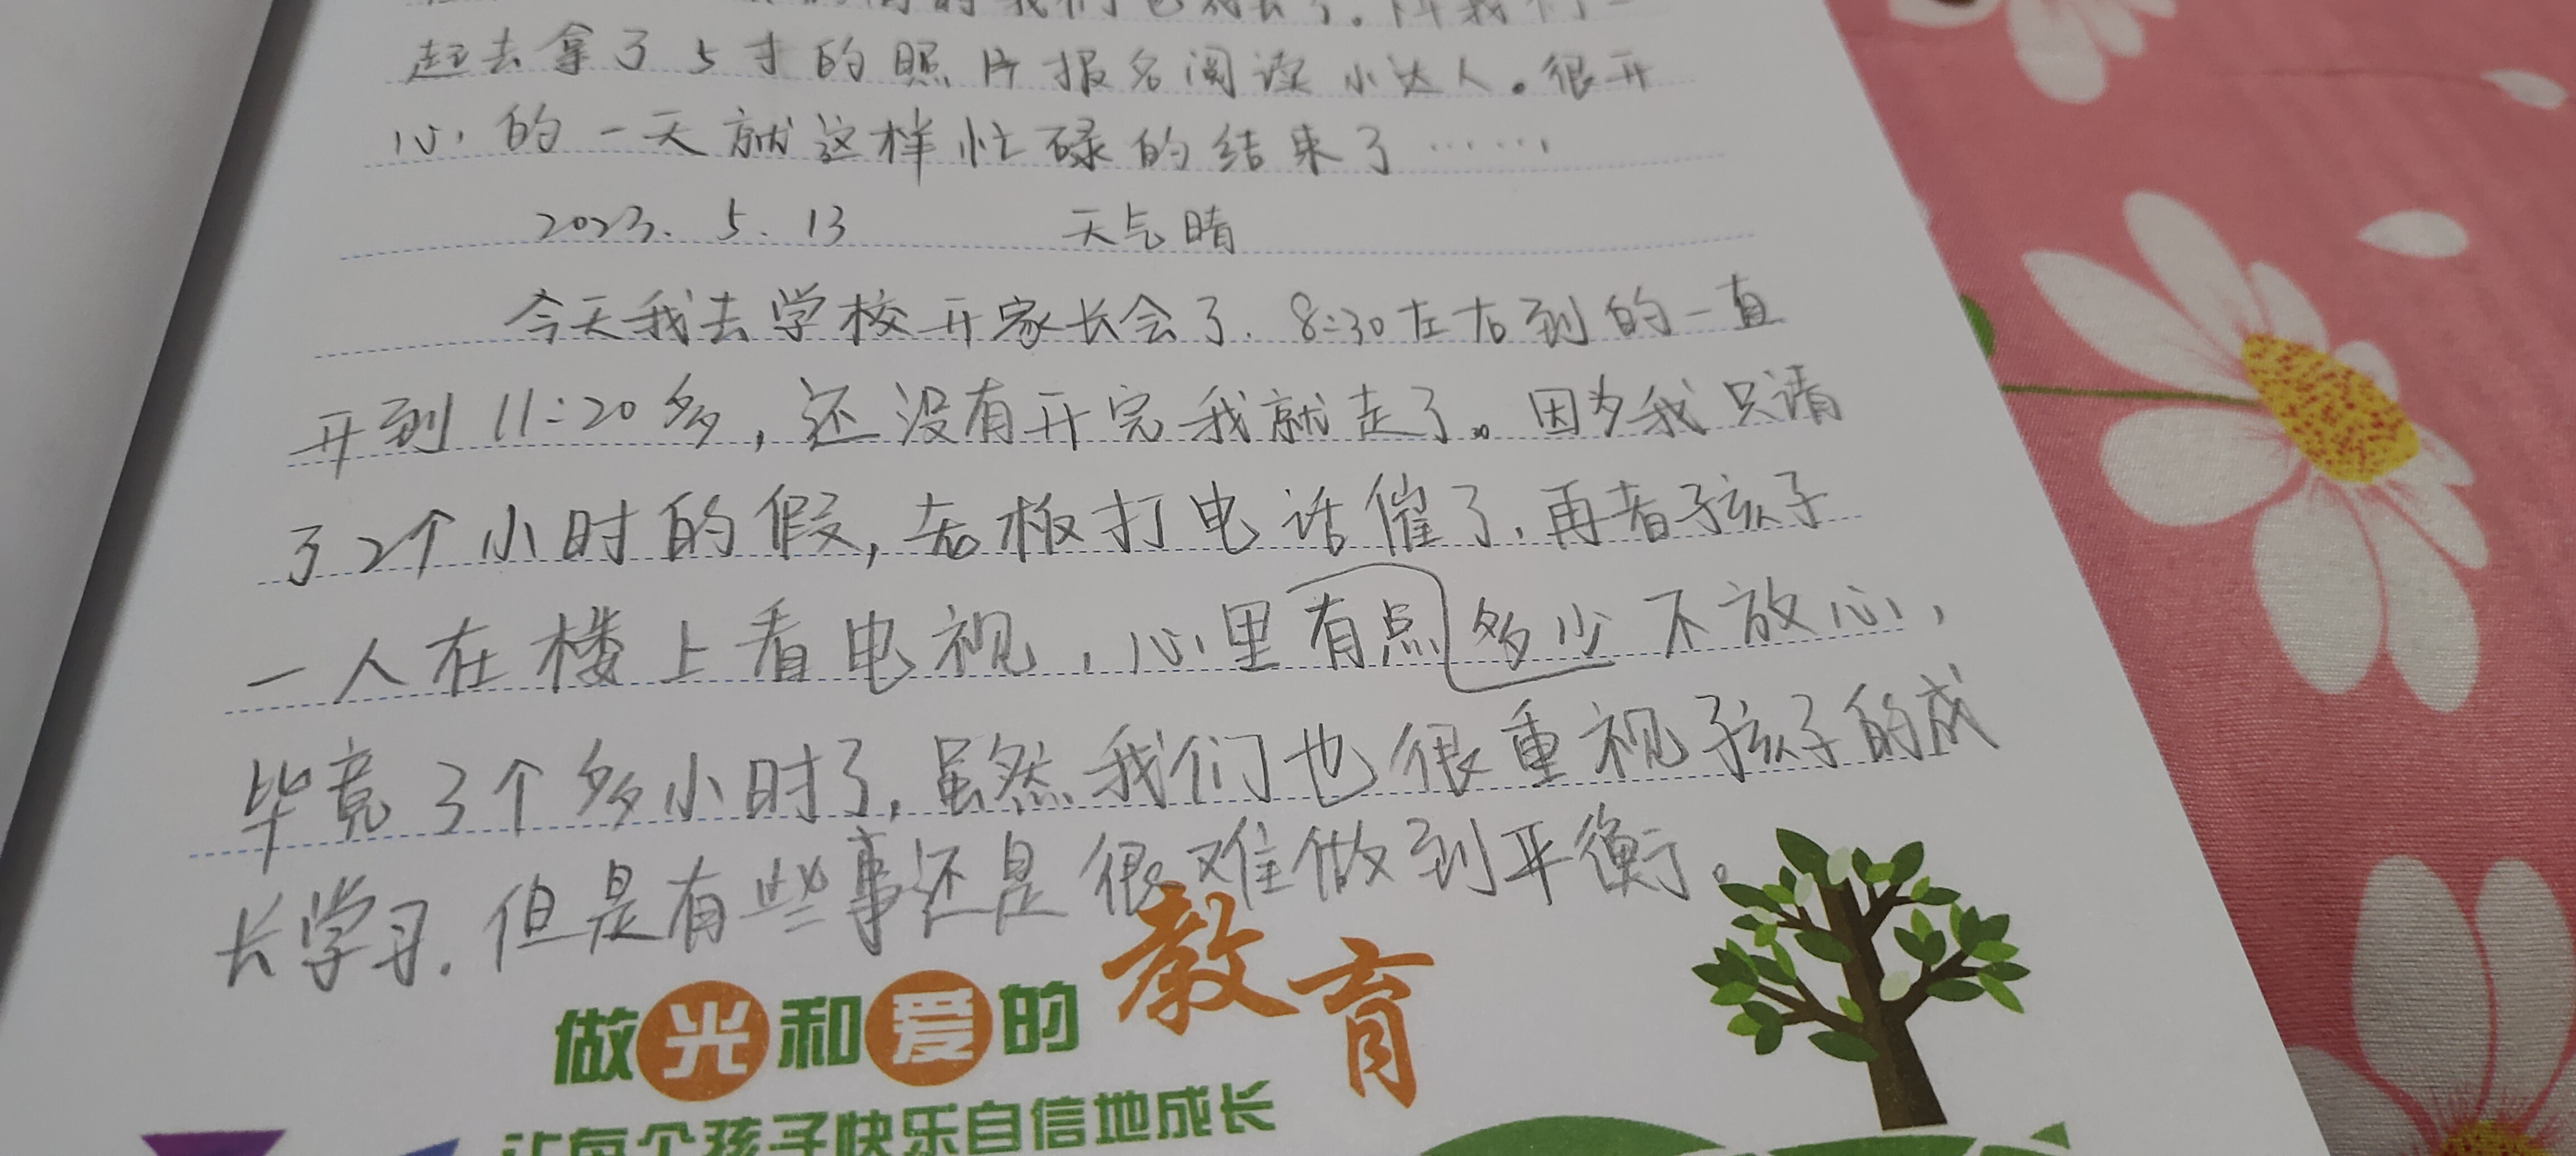 我们也
起去拿了5寸的照片报名阅读小达人。很开
心的一天就这样忙碌的结束了……
2023.5.13 天气晴
今天我去学校开家长会了.8:30左右到的一直
开到11:20多,还没有开完我就走了。因为我只请
了2个小时的假,老板打电话催了,再者孩子
一人在楼上看电视,心里有点多少不放心,
毕竟3个多小时了,虽然我们也很重视孩子的成
长学习.但是有些事还是很难做到平衡。
做光和爱的教育
让每个孩子快乐自信地成长